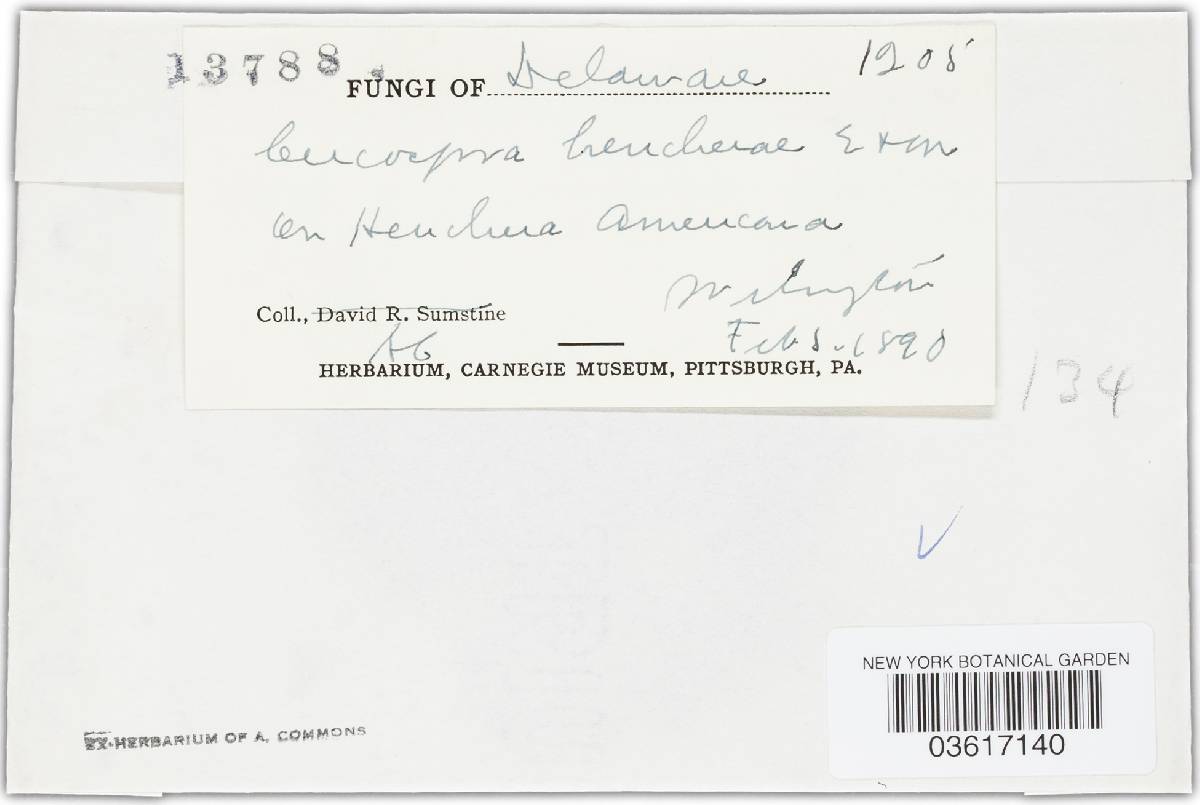 13788.
FUNGI OF Delaware 1905
Cercospora heucherae E & M
on Heuchera Americana
Wilmington
Coll., David R. Sumstine
AC
Feb 8. 1890
HERBARIUM, CARNEGIE MUSEUM, PITTSBURGH, PA.
134
V
NEW YORK BOTANICAL GARDEN
03617140
EX-HERBARIUM OF A. COMMONS